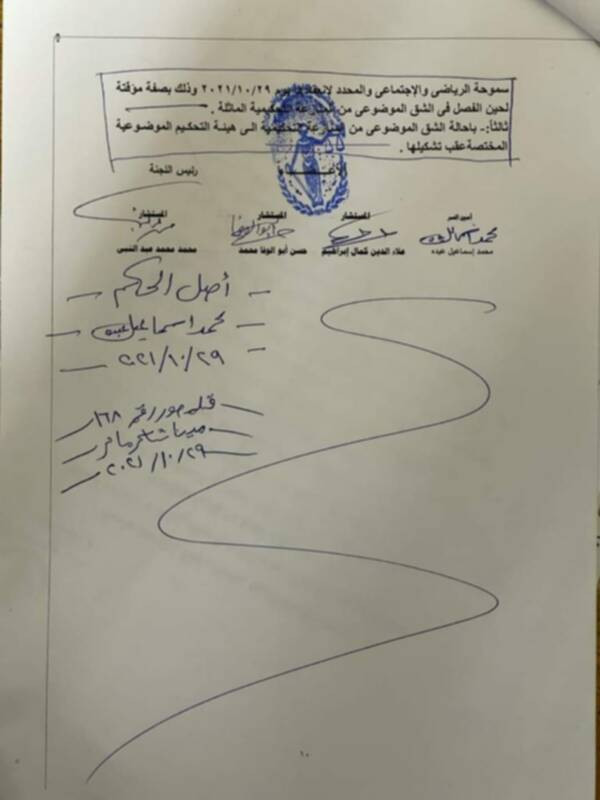 سموحة الرياضى والإجتماعى والمحدد لإنعقادها يوم ٢٠٢١/١٠/٢٩ وذلك بصفة مؤقتة
لحين الفصل فى الشق الموضوعى من المنازعة التحكيمية الماثلة .
ثالثاً:- باحالة الشق الموضوعى من المنازعة التحكيمية الى هيئة التحكيم الموضوعية
المختصة عقب تشكيلها .
الأعضاء
رئيس اللجنة
أمين السر
المستشار
المستشار
المستشار
محمد إسماعيل عبده
علاء الدين كمال إبراهيم
حسن أبو الوفا محمد
محمد محمد عبد النبى
أصل الحكم
محمد اسماعيل عبده
٢٠٢١/١٠/٢٩
صور رقم ١٦٨
٢٠٢١/١٠/٢٩
١٠